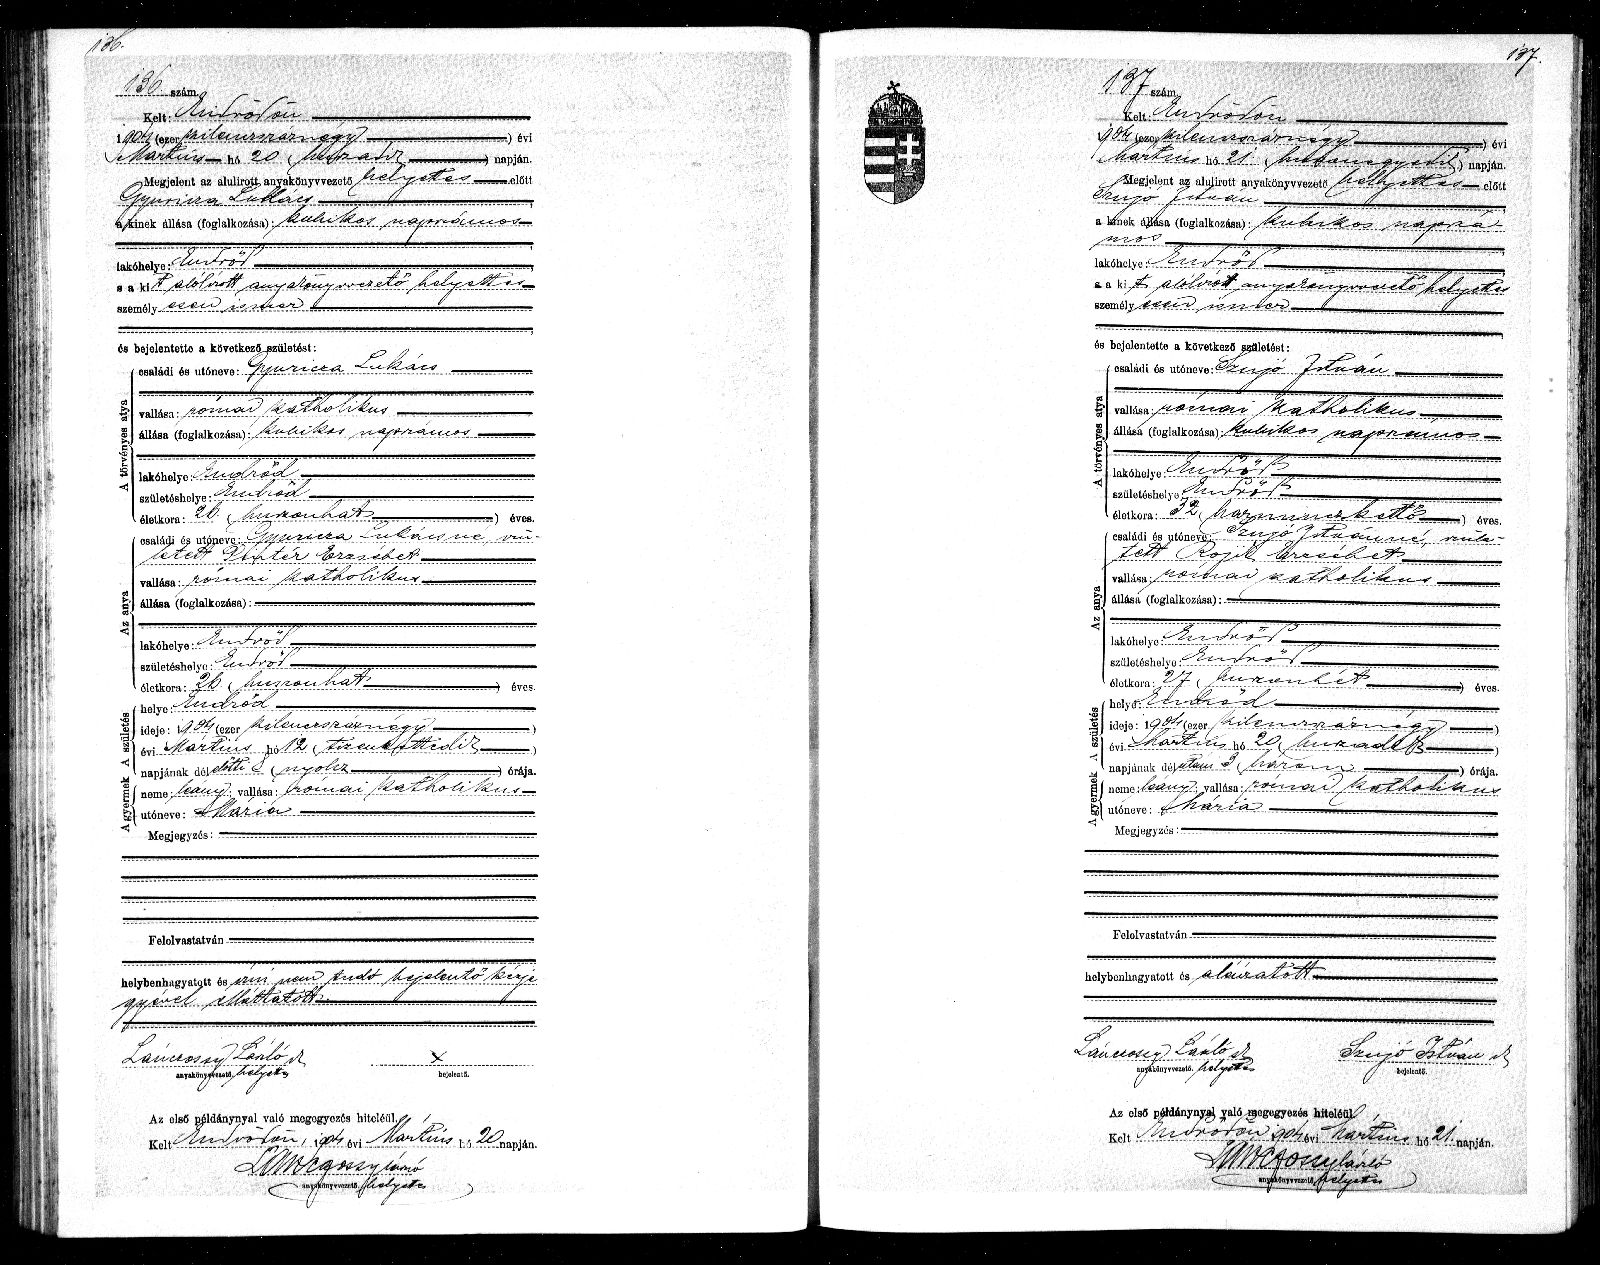 136.
136. szám.
Kelt: Endrődön
1904 (ezer kilencszáznégy) évi
Martius hó 20 (huszadik) napján.
Megjelent az alulirott anyakönyvvezető helyettes előtt
Gyuricza Lukács
a kinek állása (foglalkozása): kubikos napszámos
lakóhelye: Endrőd
s a kit alólirott anyakönyvvezető helyettes
személyesen ismer
és bejelentette a következő születést:
A törvényes atya
családi és utóneve: Gyuricza Lukács
vallása: római katholikus
állása (foglalkozása): kubikos napszámos
lakóhelye: Endrőd
születéshelye: Endrőd
életkora: 26 (huszonhat) éves.
Az anya
családi és utóneve: Gyuricza Lukácsné, szü-
letett Pintér Erzsébet
vallása: római katholikus
állása (foglalkozása):
lakóhelye: Endrőd
születéshelye: Endrőd
életkora: 26 (huszonhat) éves.
A gyermek A születés
helye: Endrőd
ideje: 1904 (ezer kilencszáznégy)
évi Martius hó 12 (tizenkettedik)
napjának délelőtti 8 (nyolcz) órája.
neme: leány; vallása: római katholikus
utóneve: Mária
Megjegyzés:
Felolvastatván
helybenhagyatott és irni nem tudó bejelentő kézje
gyével elláttatott
Lánczossy László sk
anyakönyvvezető. helyettes
x
bejelentő.
Az első példánynyal való megegyezés hiteléül.
Kelt Endrődön, 1904 évi Martius hó 20 napján.
Lánczossy László
anyakönyvvezető. helyettes
137.
137 szám.
Kelt: Endrődön
1904 (ezer kilencszáznégy) évi
Martius hó 21. (huszonegyedik) napján.
Megjelent az alulirott anyakönyvvezető helyettes előtt
Szujó István
a kinek állása (foglalkozása): kubikos napszá-
mos
lakóhelye: Endrőd
s a kit alólirott anyakönyvvezető helyettes
személyesen ismer
és bejelentette a következő születést:
A törvényes atya
családi és utóneve: Szujó István
vallása: római katholikus
állása (foglalkozása): kubikos napszámos
lakóhelye: Endrőd
születéshelye: Endrőd
életkora: 32 (harminczkettő) éves.
Az anya
családi és utóneve: Szujó Istvánné, szüle-
tett Rojik Erzsébet
vallása: római katholikus
állása (foglalkozása):
lakóhelye: Endrőd
születéshelye: Endrőd
életkora: 27 (huszonhét) éves.
A gyermek A születés
helye: Endrőd
ideje: 1904 (ezer kilencszáznégy)
évi Martius hó 20 (huszadik)
napjának délutáni 3 (három) órája.
neme: leány; vallása: római katholikus
utóneve: Mária
Megjegyzés:
Felolvastatván
helybenhagyatott és aláiratott
Lánczossy László sk
anyakönyvvezető. helyettes
Szujó István sk
bejelentő.
Az első példánynyal való megegyezés hiteléül.
Kelt Endrődön 1904 évi Martius hó 21. napján.
Lánczossy László
anyakönyvvezető. helyettes